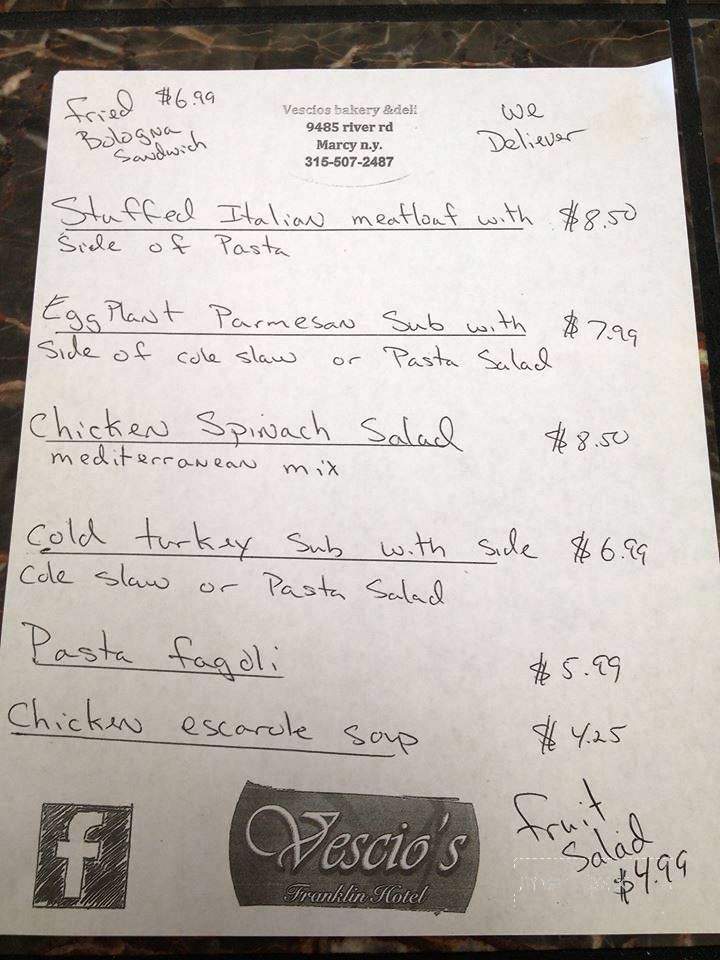 Fried $6.99
Bologna
Sandwich
Vescios bakery &deli
9485 river rd
Marcy n.y.
315-507-2487
We
Deliever
Stuffed Italian meatloaf with $8.50
Side of Pasta
EggPlant Parmesan Sub with $7.99
Side of cole slaw or Pasta Salad
Chicken Spinach Salad $8.50
mediterranean mix
Cold turkey Sub with side $6.99
Cole slaw or Pasta Salad
Pasta fagoli $5.99
Chicken escarole soup $4.25
f
Vescio's
Franklin Hotel
Fruit
Salad
$4.99